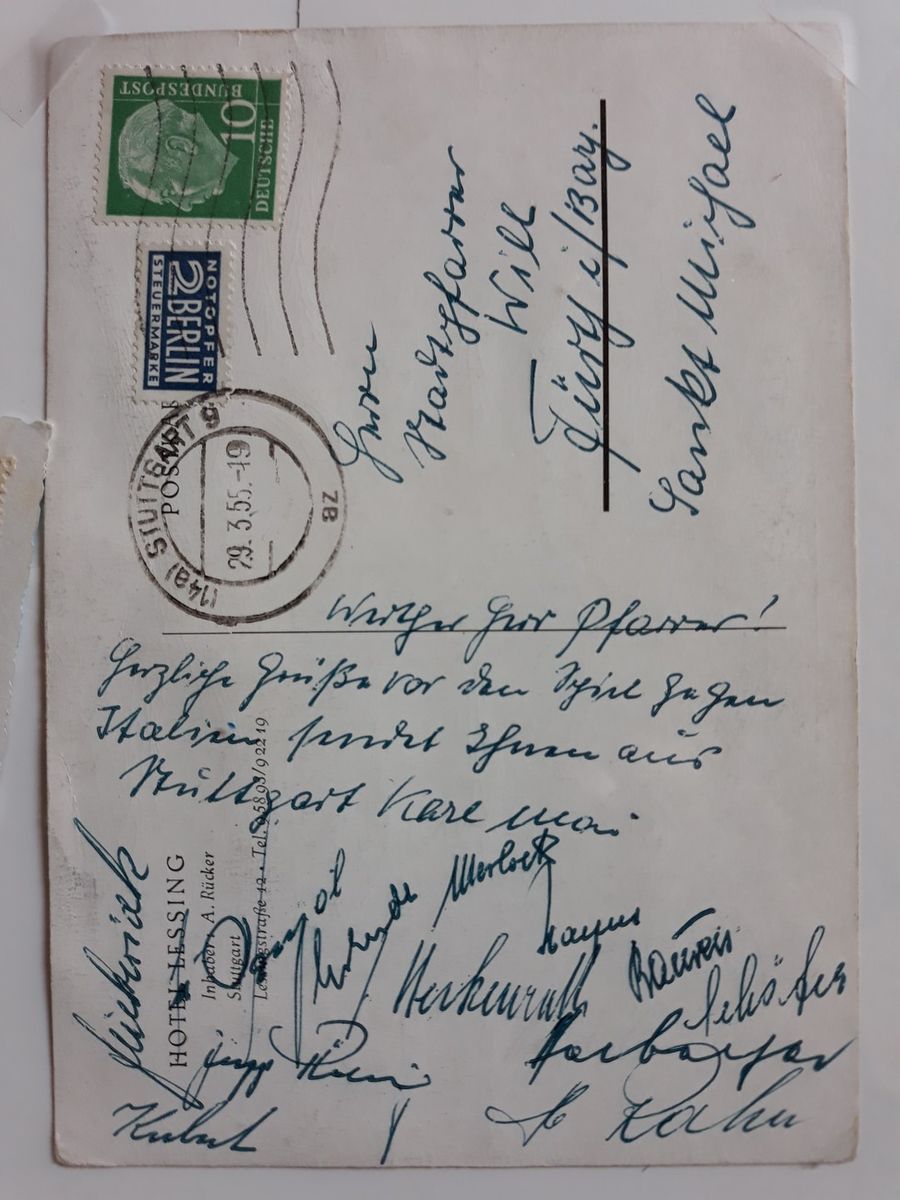 Werther Herr Pfarrer!
Herzliche Grüße vor dem Spiel gegen
Italien sendet Ihnen aus
Stuttgart Karl Mai
HOTEL LESSING
Inhaber: A. Rücker
Stuttgart
Lessingstraße 12 • Tel. 95898/92219
Posipal
Erhardt
Morlock
Mayer
Herkenrath
Baureis
Schäfer
Harburger
H Rahn
Kubsch
DEUTSCHE
BUNDESPOST
10
NOTOPFER
2 BERLIN
STEUERMARKE
(14a) STUTTGART 9
29.3.55.-19
ZB
Herrn
Stadtpfarrer
Will
Fürth i/Bay.
Sankt Michael